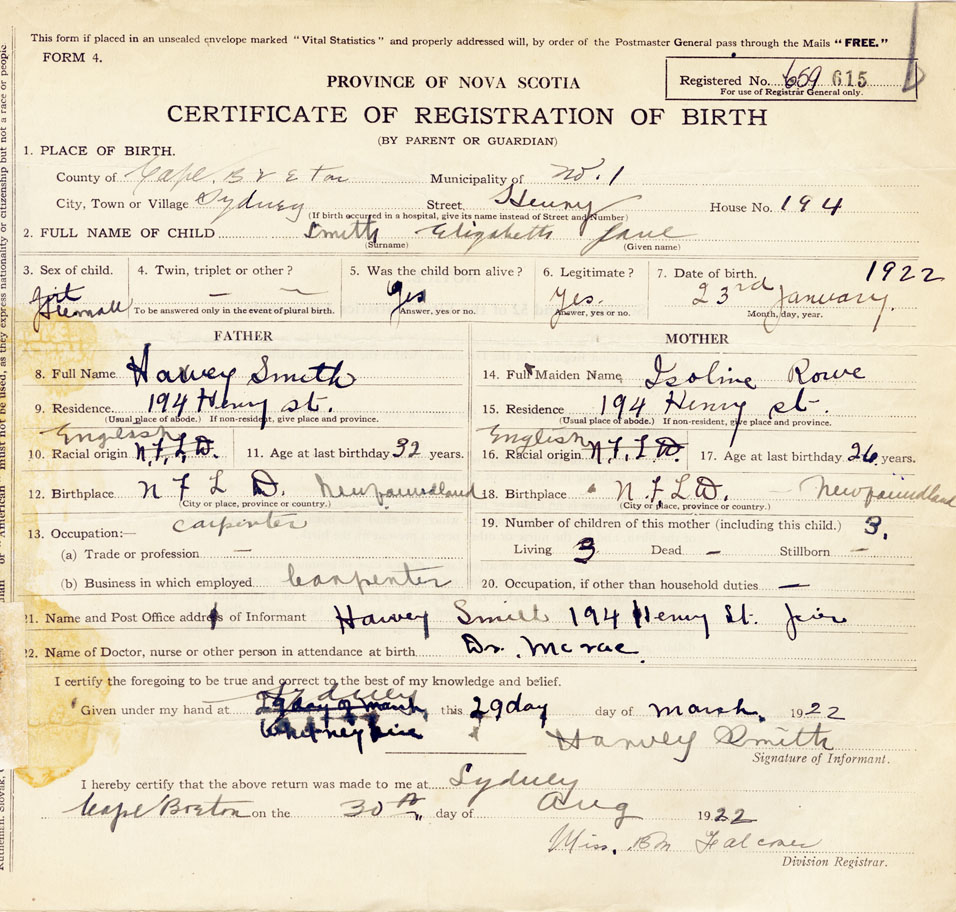 This form if placed in an unsealed envelope marked "Vital Statistics" and properly addressed will, by order of the Postmaster General pass through the Mails "FREE."
FORM 4.
PROVINCE OF NOVA SCOTIA
Registered No. 659 615
For use of Registrar General only.
CERTIFICATE OF REGISTRATION OF BIRTH
(BY PARENT OR GUARDIAN)
1. PLACE OF BIRTH.
County of Cape Breton Municipality of No. 1
City, Town or Village Sydney Street Henry House No. 194
(If birth occurred in a hospital, give its name instead of Street and Number)
2. FULL NAME OF CHILD Smith Elizabeth Jane
(Surname) (Given name)
3. Sex of child. 4. Twin, triplet or other? 5. Was the child born alive? 6. Legitimate? 7. Date of birth. 1922
Yes Yes. 23rd January.
To be answered only in the event of plural birth. Answer, yes or no. Answer, yes or no. Month, day, year.
FATHER MOTHER
8. Full Name Harvey Smith 14. Full Maiden Name Isoline Rowe
9. Residence 194 Henry st. 15. Residence 194 Henry st.
(Usual place of abode.) If non-resident, give place and province. (Usual place of abode.) If non-resident, give place and province.
English English
10. Racial origin N.F.L.D. 11. Age at last birthday 32 years. 16. Racial origin N.F.L.D. 17. Age at last birthday 26 years.
12. Birthplace N F L D. Newfoundland 18. Birthplace N.F.L.D. — Newfoundland
(City or place, province or country.) (City or place, province or country.)
13. Occupation:— carpenter 19. Number of children of this mother (including this child.) 3.
(a) Trade or profession — Living 3 Dead — Stillborn —
(b) Business in which employed Carpenter 20. Occupation, if other than household duties —
21. Name and Post Office address of Informant Harvey Smith 194 Henry St.
22. Name of Doctor, nurse or other person in attendance at birth Dr. Mcrae
I certify the foregoing to be true and correct to the best of my knowledge and belief.
Sydney
Given under my hand at 29 day of marsh, this 29 day day of marsh. 1922
Whitney Pier
Harvey Smith
Signature of Informant.
I hereby certify that the above return was made to me at Sydney
Cape Breton on the 30th day of Aug 1922
Miss. BM Falconer
Division Registrar.